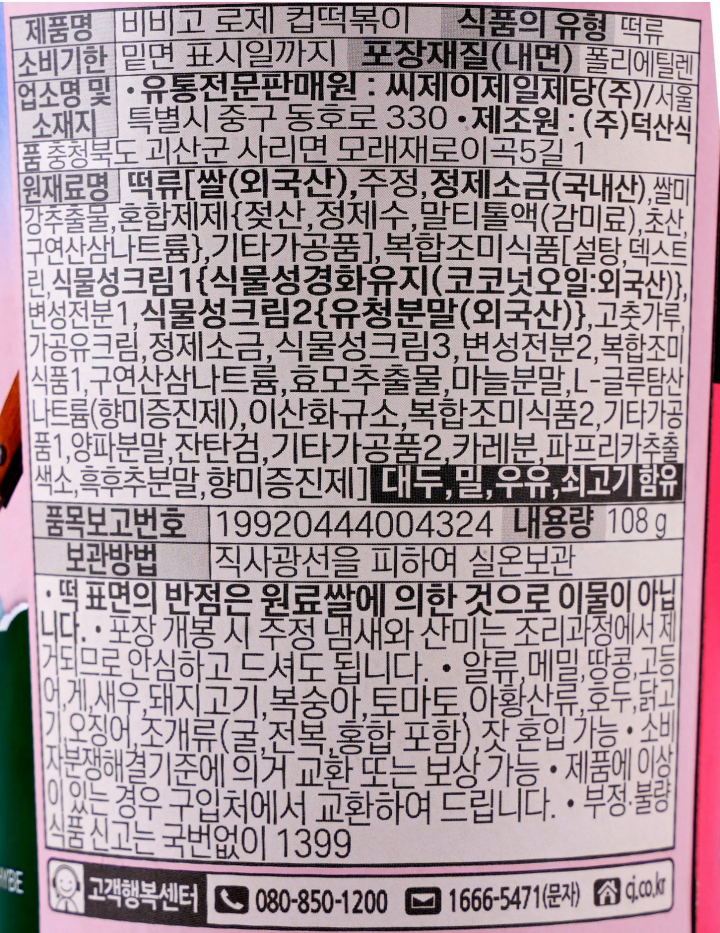 제품명 비비고 로제 컵떡볶이 식품의 유형 떡류
소비기한 밑면 표시일까지 포장재질(내면) 폴리에틸렌
업소명 및 소재지 •유통전문판매원 : 씨제이제일제당(주)/서울
특별시 중구 동호로 330 •제조원 : (주)덕산식
품 충청북도 괴산군 사리면 모래재로이곡5길 1
원재료명 떡류[쌀(외국산),주정,정제소금(국내산),쌀미
강추출물,혼합제제{젖산,정제수,말티톨액(감미료),초산,
구연산삼나트륨},기타가공품],복합조미식품[설탕,덱스트
린,식물성크림1{식물성경화유지(코코넛오일:외국산)},
변성전분1,식물성크림2{유청분말(외국산)},고춧가루,
가공유크림,정제소금,식물성크림3,변성전분2,복합조미
식품1,구연산삼나트륨,효모추출물,마늘분말,L-글루탐산
나트륨(향미증진제),이산화규소,복합조미식품2,기타가공
품1,양파분말,잔탄검,기타가공품2,카레분,파프리카추출
색소,흑후추분말,향미증진제] 대두,밀,우유,쇠고기 함유
품목보고번호 19920444004324 내용량 108 g
보관방법 직사광선을 피하여 실온보관
• 떡 표면의 반점은 원료쌀에 의한 것으로 이물이 아닙
니다. • 포장 개봉 시 주정 냄새와 산미는 조리과정에서 제
거되므로 안심하고 드셔도 됩니다. • 알류,메밀,땅콩,고등
어,게,새우,돼지고기,복숭아,토마토,아황산류,호두,닭고
기,오징어,조개류(굴,전복,홍합 포함),잣 혼입 가능 • 소비
자분쟁해결기준에 의거 교환 또는 보상 가능 • 제품에 이상
이 있는 경우 구입처에서 교환하여 드립니다. • 부정·불량
식품 신고는 국번없이 1399
고객행복센터 080-850-1200 1666-5471(문자) cj.co.kr